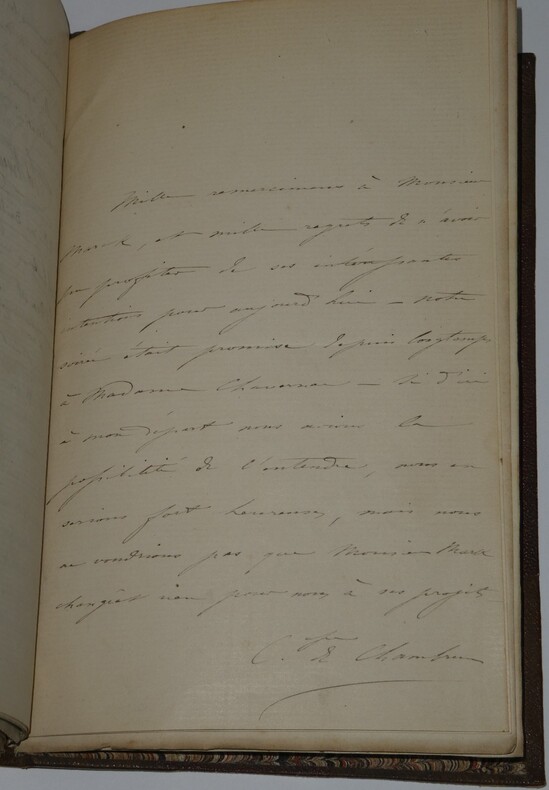 Mille remercimens à Monsieur
Marck, et mille regrets de n'avoir
pu profiter de ses intéressantes
intentions pour aujourd'hui – notre
soirée était promise depuis longtemps
à Madame – Si d'ici
à mon départ nous avions la
possibilité de l'entendre, nous en
serions fort heureuses, mais nous
ne voudrions pas que Monsieur Marck
changeât rien pour nous à ses projets
C.sse de Chambrun